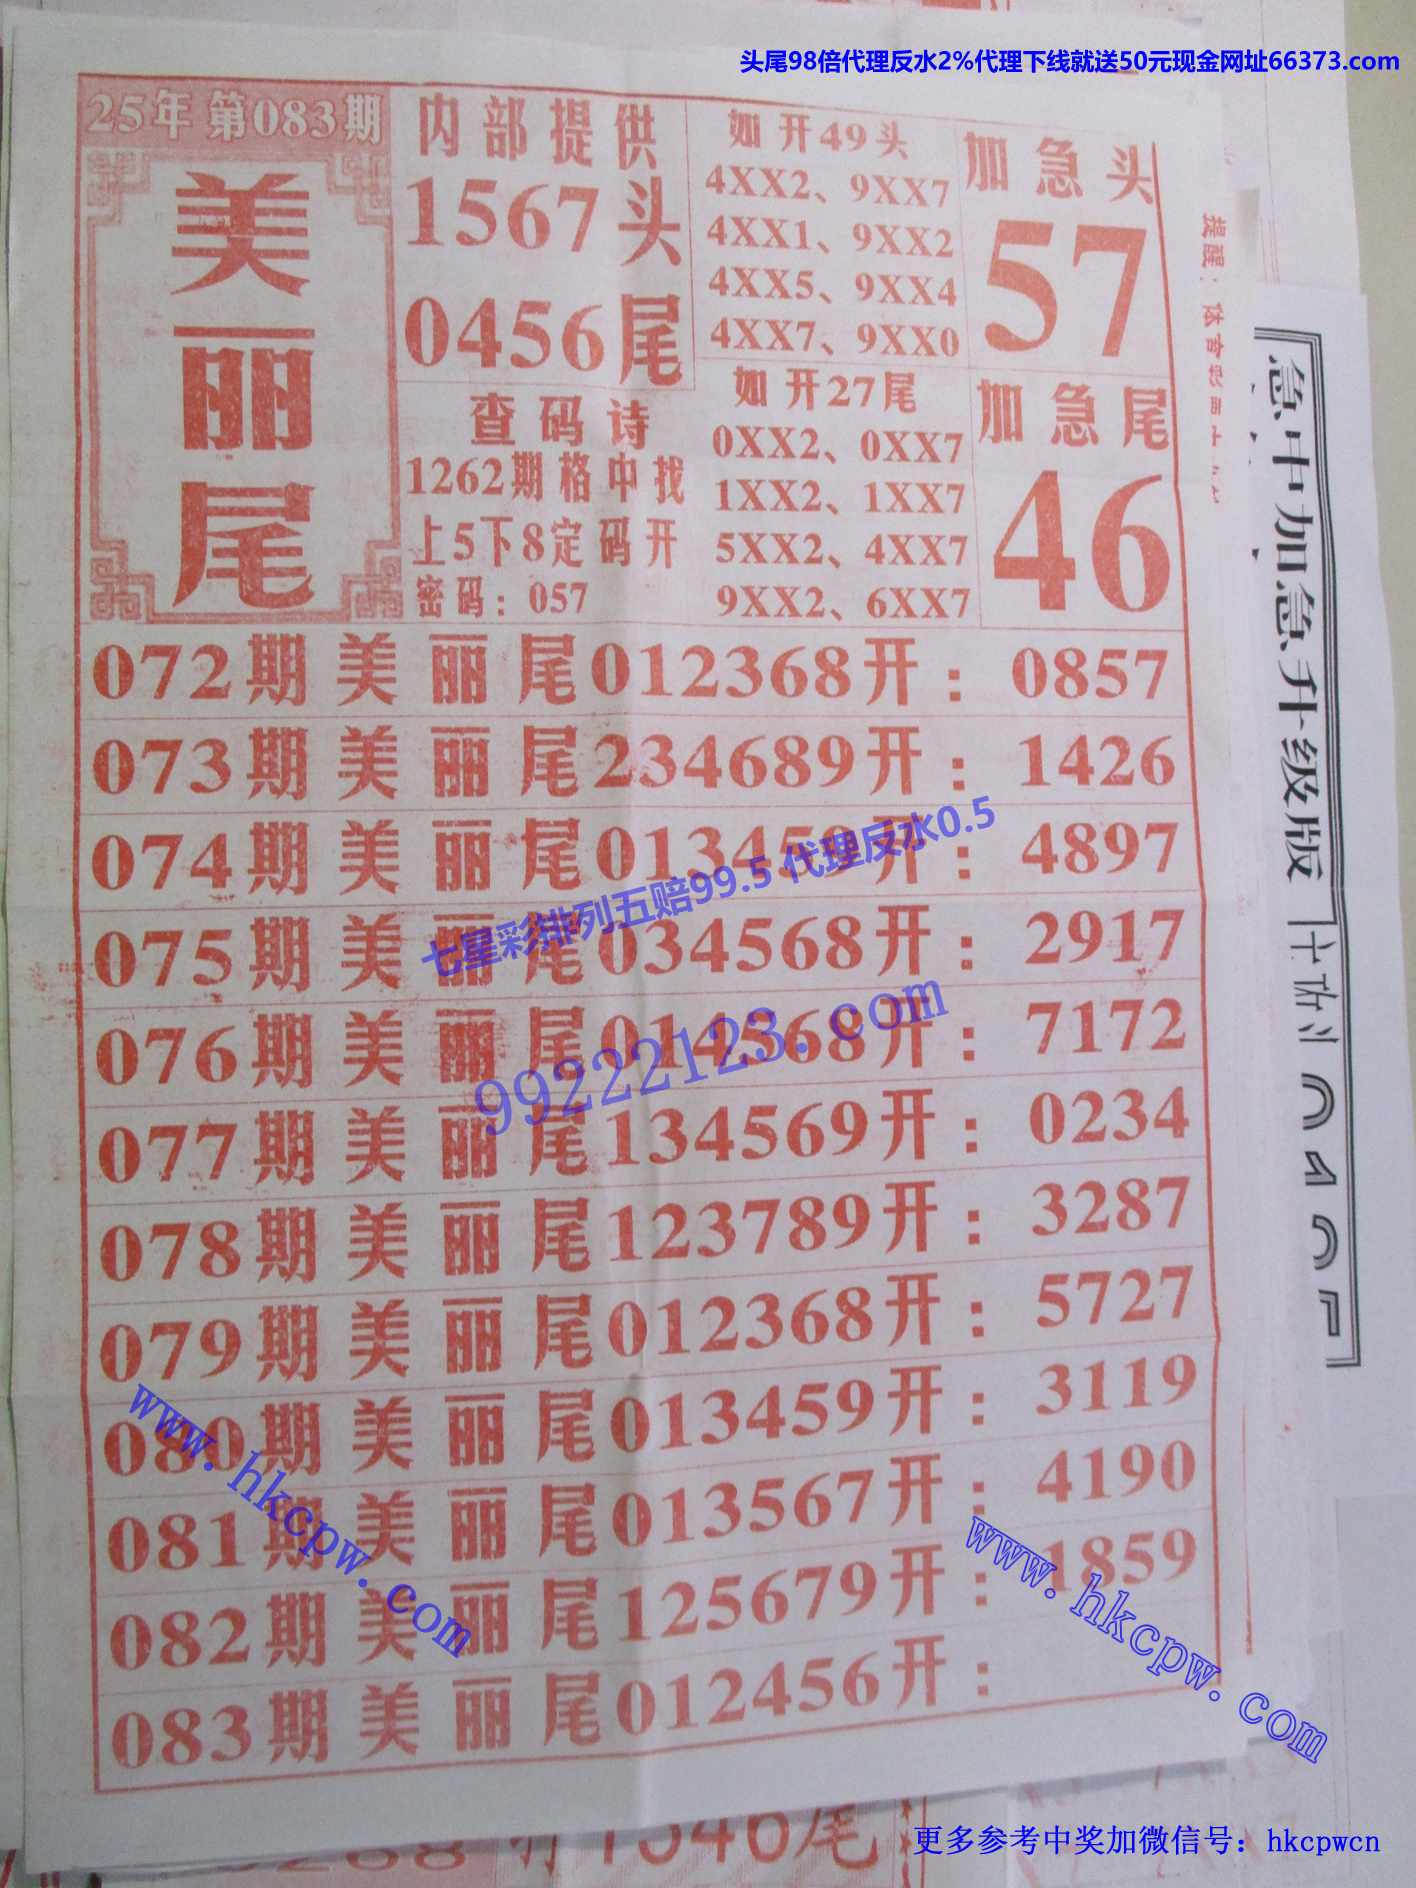 头尾98倍代理反水2%代理下线就送50元现金网址66373.com
25年 第083期
美丽尾
内部提供
1567头
0456尾
查码诗
1262期格中找
上5下8定码开
密码：057
如开49头
4XX2、9XX7
4XX1、9XX2
4XX5、9XX4
4XX7、9XX0
如开27尾
0XX2、0XX7
1XX2、1XX7
5XX2、4XX7
9XX2、6XX7
加急头
57
加急尾
46
提醒：体育
急中加急升级版
072期美丽尾012368开：0857
073期美丽尾234689开：1426
074期美丽尾013459开：4897
075期美丽尾034568开：2917
076期美丽尾014568开：7172
077期美丽尾134569开：0234
078期美丽尾123789开：3287
079期美丽尾012368开：5727
080期美丽尾013459开：3119
081期美丽尾013567开：4190
082期美丽尾125679开：1859
083期美丽尾012456开：
七星彩排列五赔99.5 代理反水0.5
99222123.com
www.hkcpw.com
www.hkcpw.com
1346尾
更多参考中奖加微信号：hkcpwcn